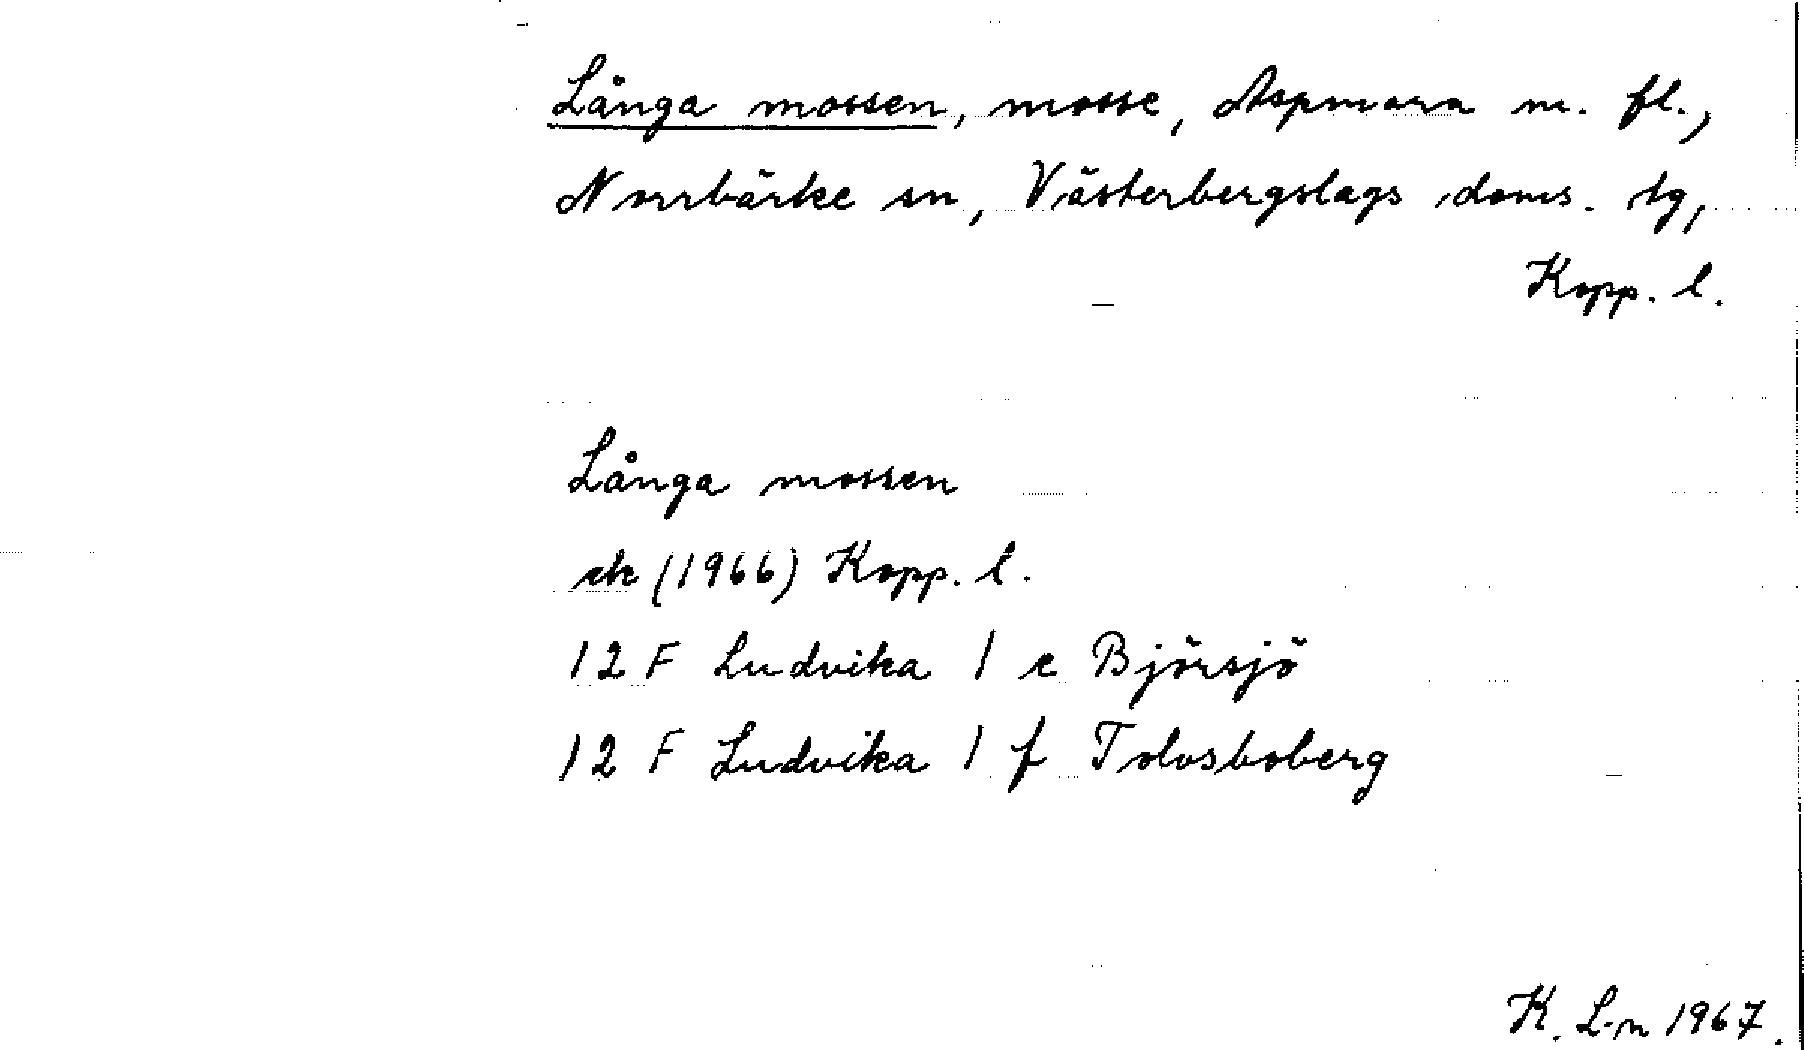 Långa mossen, mosse, Aspmora m. fl.,
Norrbärke sn, Västerbergslags doms. tg,
Kopp. l.
Långa mossen
ek (1966) Kopp. l.
12 F Ludvika 1 e Björsjö
12 F Ludvika 1 f Tolvsboberg
K. L-n 1967.